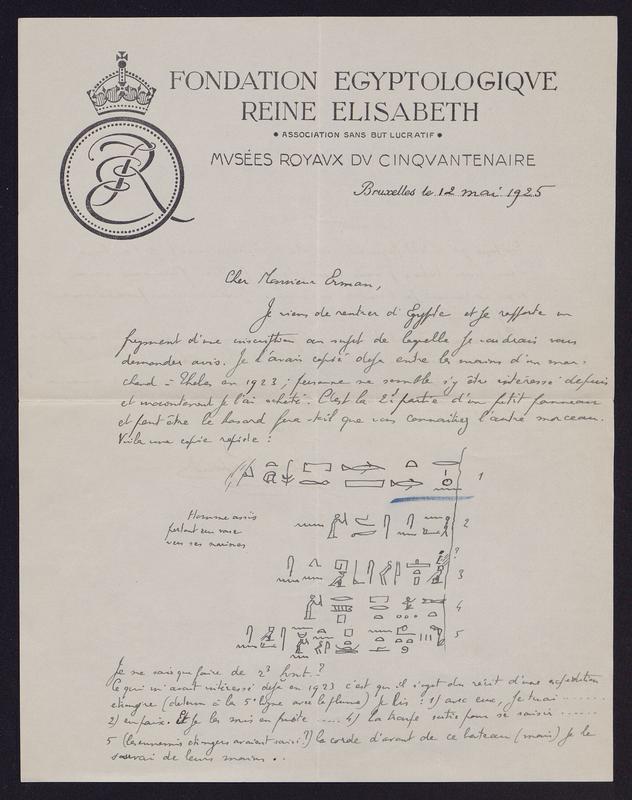 FONDATION EGYPTOLOGIQVE
REINE ELISABETH
• ASSOCIATION SANS BUT LUCRATIF •
MVSÉES ROYAVX DV CINQVANTENAIRE
Bruxelles le 12 mai 1925
Cher Monsieur Erman,
Je viens de rentrer d'Egypte et je rapporte un
fragment d'une inscription au sujet de laquelle je voudrais vous
demander avis. Je l'avais copié déjà entre les mains d'un mar-
chand à Thèbes en 1923 ; personne ne semble s'y être intéressé depuis
et maintenant je l'ai acheté. C'est la 2e partie d'un petit panneau
et peut être le hasard fera-t-il que vous connaîtriez l'autre morceau.
Voilà une copie rapide :
1
Homme assis
portant un vase
vers ses narines
2
?
3
4
5
Je ne sais que faire de 23 hont ?
Ce qui m'avait intéressé déjà en 1923 c'est qu'il s'agit du récit d'une expédition
étrangère à la 5e ligne avec la plume) Je lis : 1) avec eux, je tuai ......
2) en paix. Et je les mis en fuite ..... 4) la troupe sortie pour se saisir ......
5 (les ennemis étrangers avaient saisi ?) la corde d'avant de ce bateau (mais) je le
sauvai de leurs mains ..